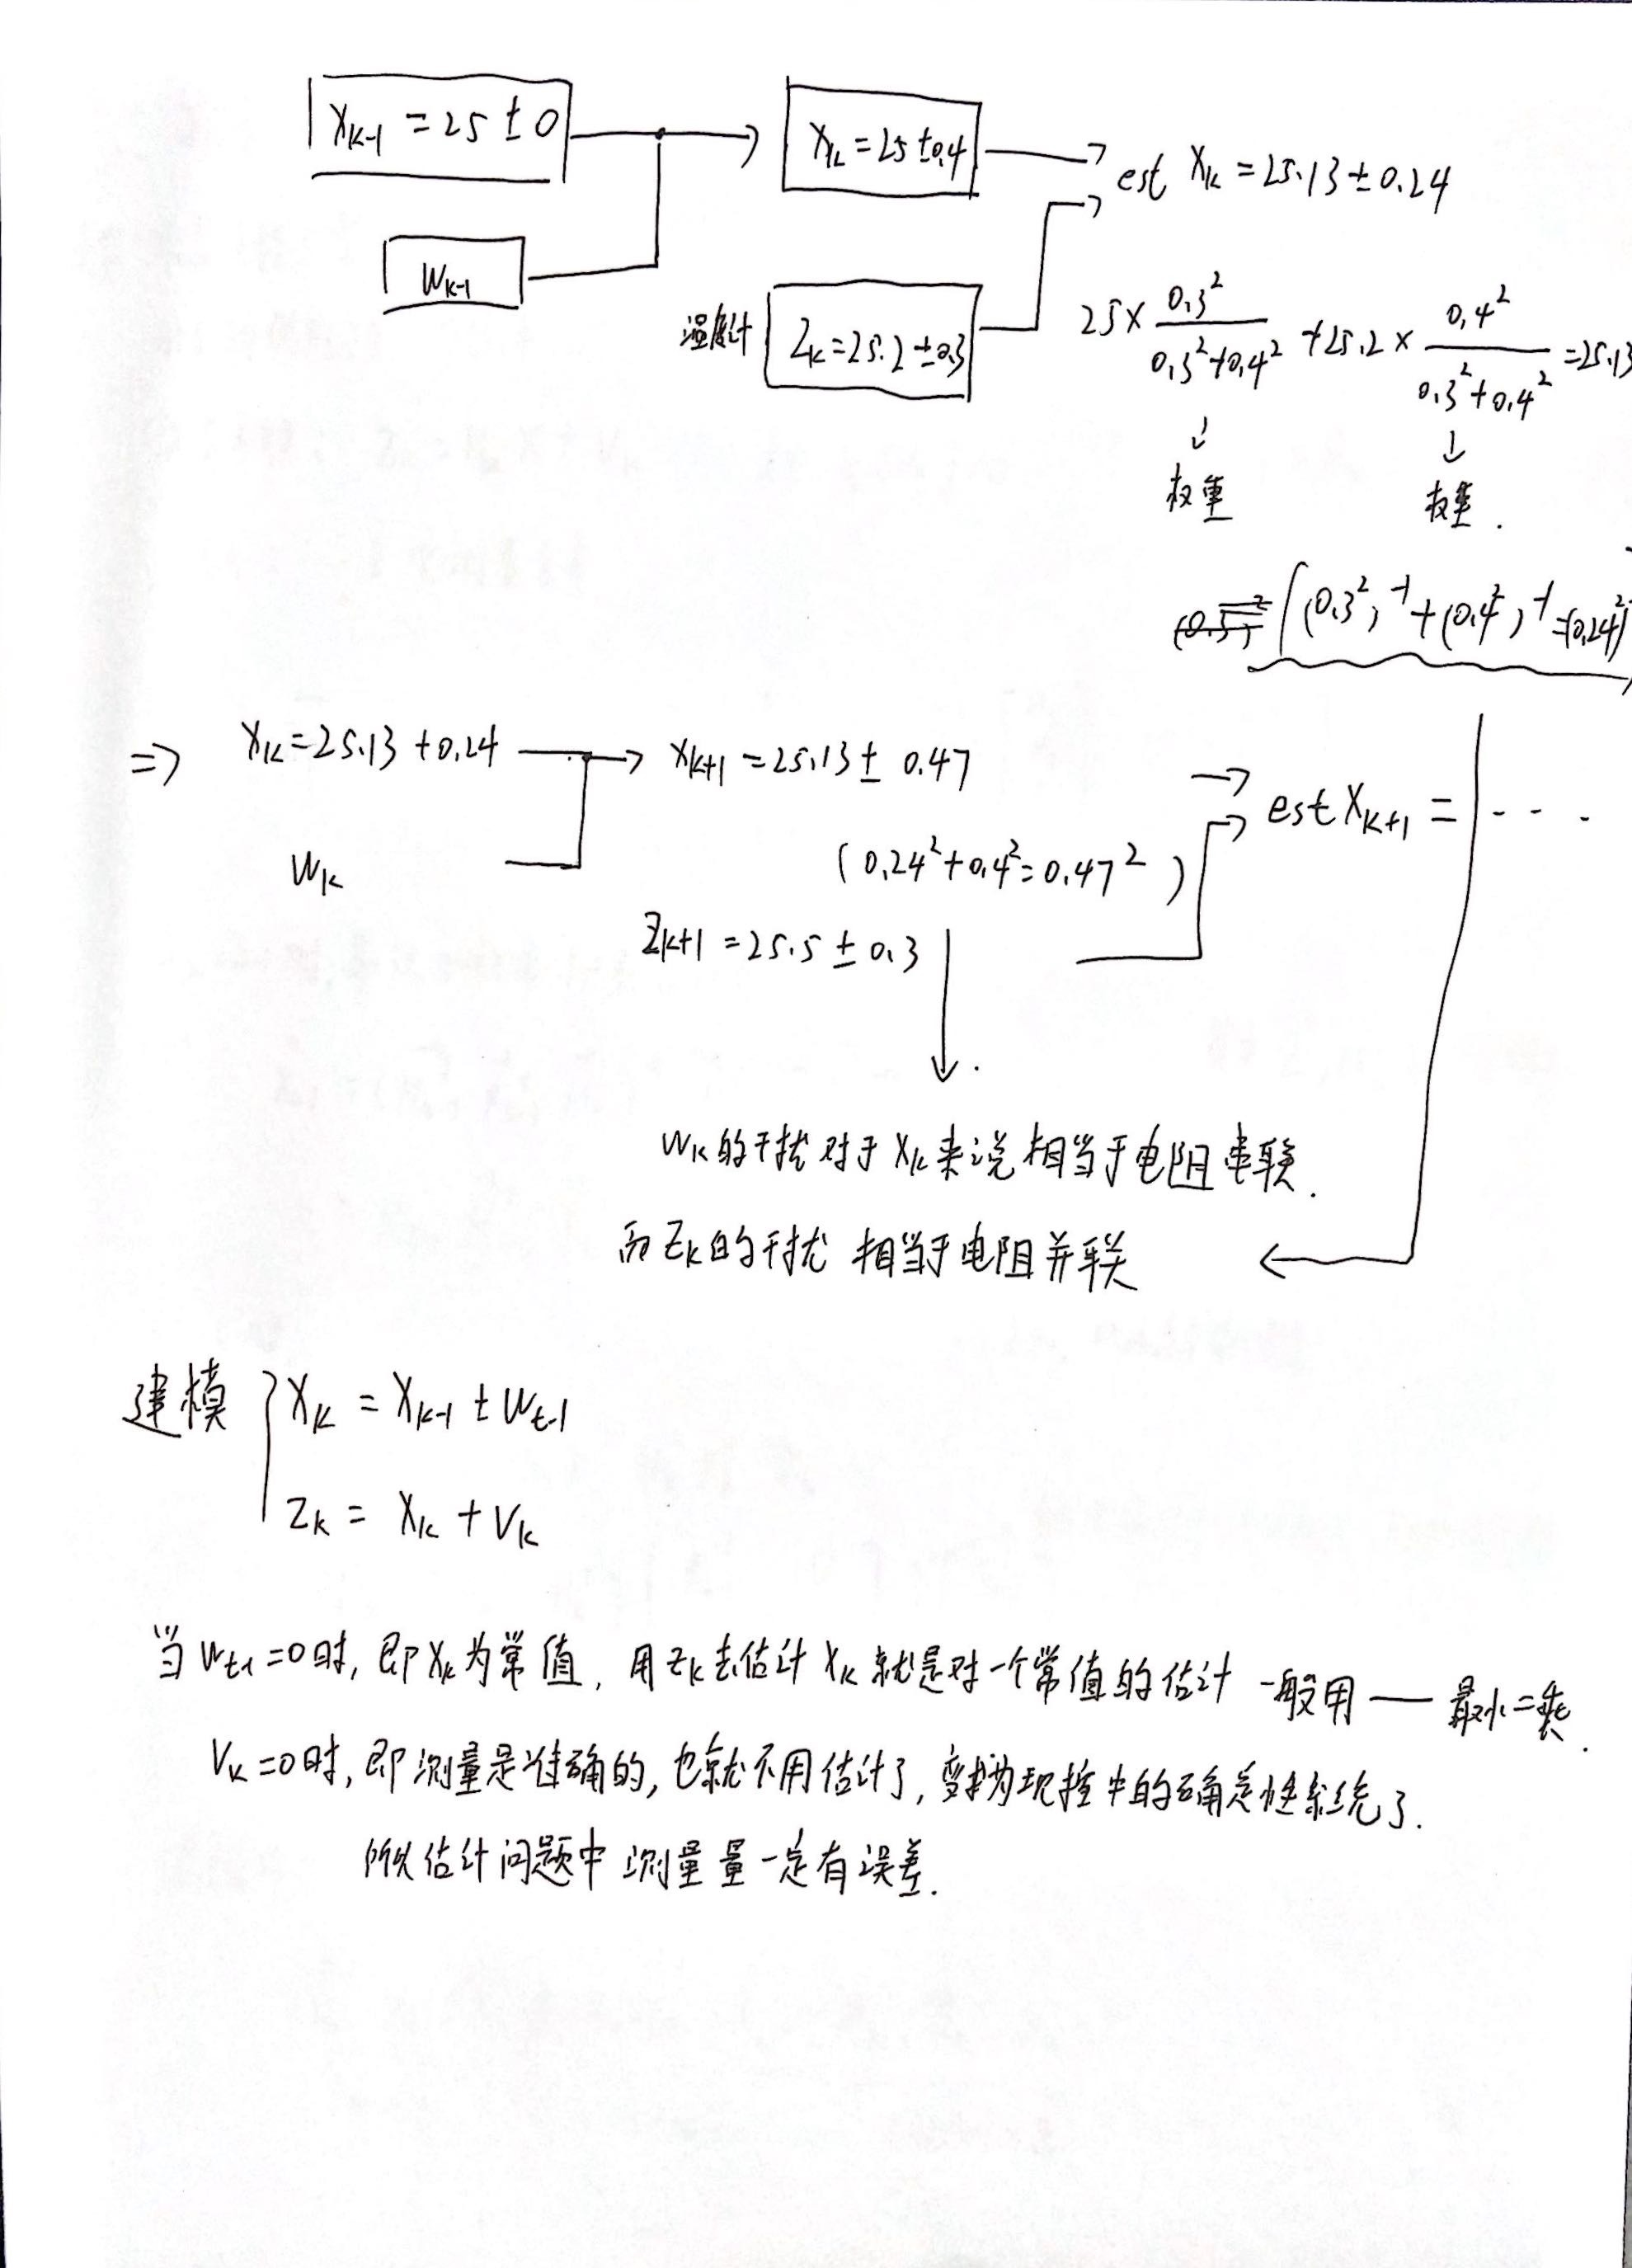 X_{k-1} = 25 ± 0
W_{k-1}
X_k = 25 ± 0.4
温度计
Z_k = 25.2 ± 0.3
est X_k = 25.13 ± 0.24
25 × 0.3²/(0.3²+0.4²) + 25.2 × 0.4²/(0.3²+0.4²) = 25.13
↓ ↓
权重 权重.
(0.3²)⁻¹ + (0.4²)⁻¹ = (0.24²)
⇒ X_k = 25.13 + 0.24 → X_{k+1} = 25.13 ± 0.47
W_k
(0.24² + 0.4² = 0.47²)
Z_{k+1} = 25.5 ± 0.3
est X_{k+1} = ...
W_k的干扰对于X_k来说相当于电阻串联.
而Z_k的干扰 相当于电阻并联
建模 X_k = X_{k-1} ± W_{t-1}
Z_k = X_k + V_k
当W_{t-1}=0时, 即X_k为常值, 用Z_k去估计X_k就是对一个常值的估计 一般用 — 最小二乘.
V_k=0时, 即测量是准确的, 也就不用估计了, 变为现控中的确定性系统了.
所以估计问题中 测量量一定有误差.